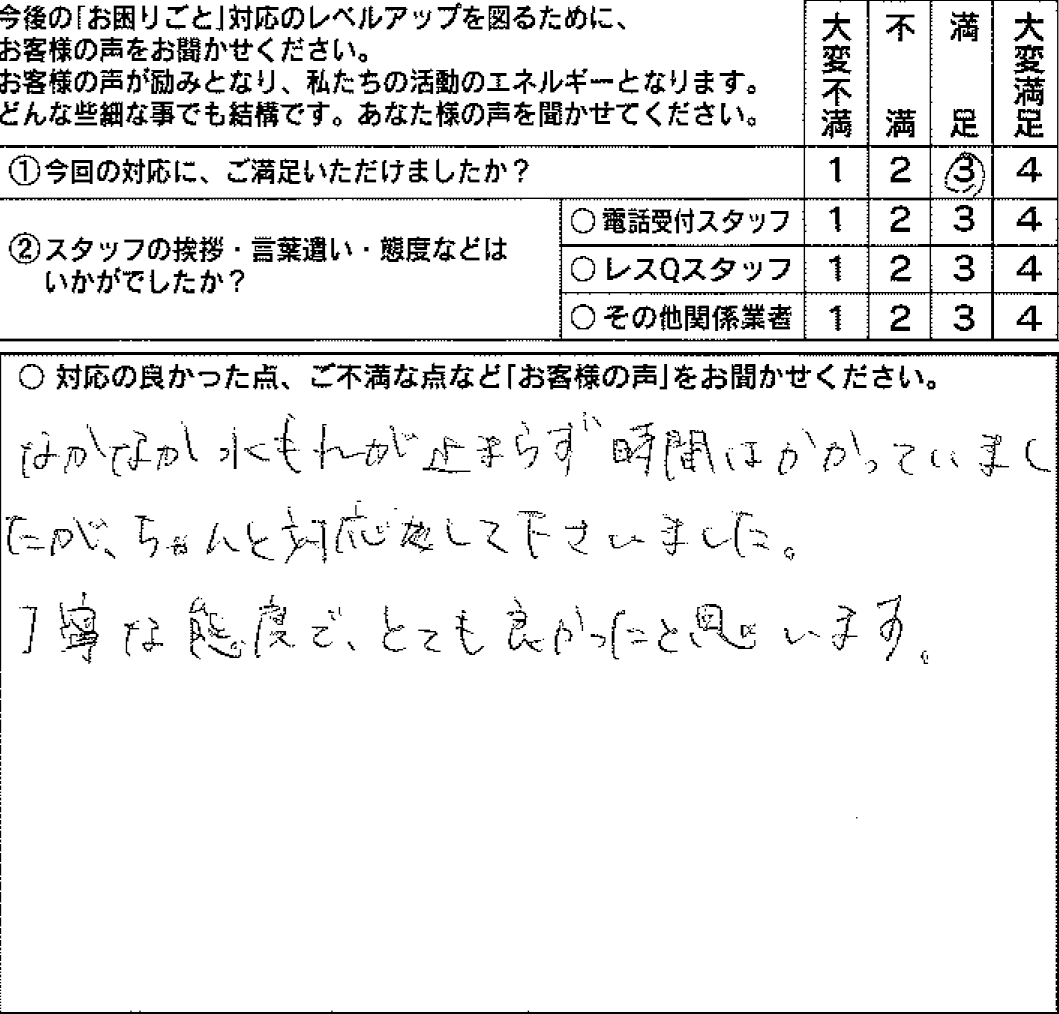 今後の「お困りごと」対応のレベルアップを図るために、
お客様の声をお聞かせください。
お客様の声が励みとなり、私たちの活動のエネルギーとなります。
どんな些細な事でも結構です。あなた様の声を聞かせてください。
大変不満 不満 満足 大変満足
①今回の対応に、ご満足いただけましたか? 1 2 3 4
②スタッフの挨拶・言葉遣い・態度などは
いかがでしたか?
○電話受付スタッフ 1 2 3 4
○レスQスタッフ 1 2 3 4
○その他関係業者 1 2 3 4
○ 対応の良かった点、ご不満な点など「お客様の声」をお聞かせください。
なかなか水もれが止まらず時間はかかっていまし
たが、ちゃんと対応して下さいました。
丁寧な態度で、とても良かったと思います。